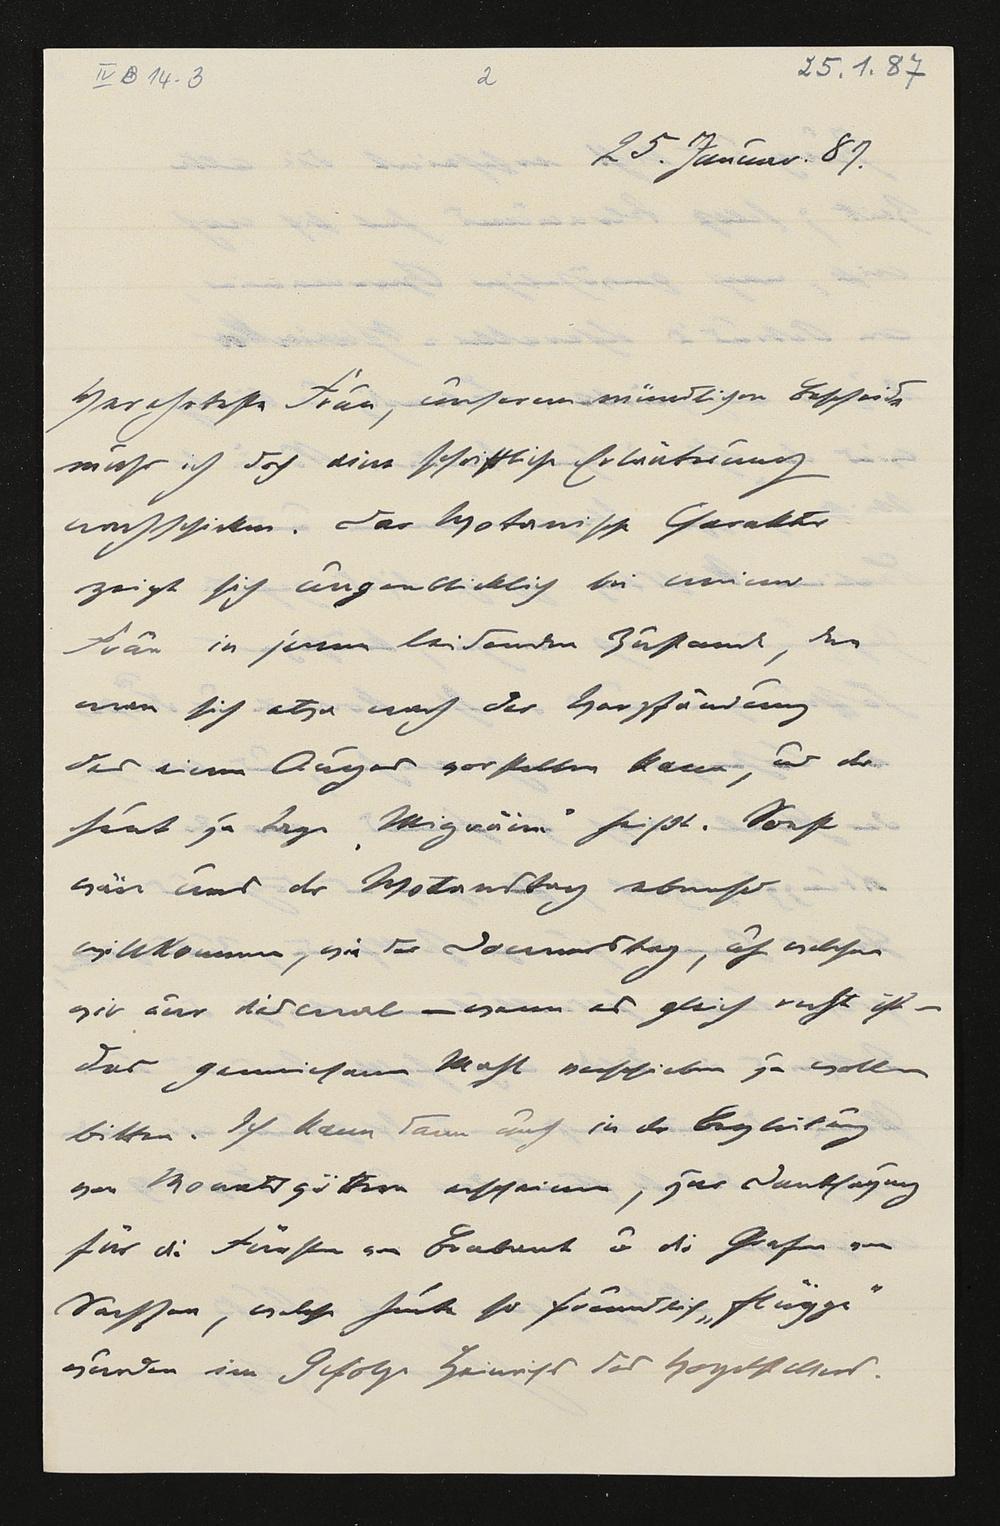 IV B 14-3
2
25.1.87
25. Januar. 87.
Verehrteste Frau, unserem mündlichen Bescheide
muß ich doch eine schriftliche Erläuterung
nachschicken. Der Wotanische Charakter
zeigt sich augenblicklich bei meiner
Frau in jenem leidenden Zustande, den
man sich etwa nach der Verpfändung
des einen Auges vorstellen kann, und der
heut zu Tage "Migräine" heißt. Sonst
wäre uns der Wotanstag ebenso
willkommen, wie der Donnerstag, auf welchen
wir nur diesmal – wenn es gleich recht ist –
das gemeinsame Mahl verschieben zu wollen
bitten. Ich kann dann auch in der Begleitung
von Monatsgöttern erscheinen, zur Danksagung
für die Fürsten von Brabant u die Grafen von
Sachsen, welche heute so freundlich „flügge"
wurden im Gefolge Heinrichs des Vogelstellers.